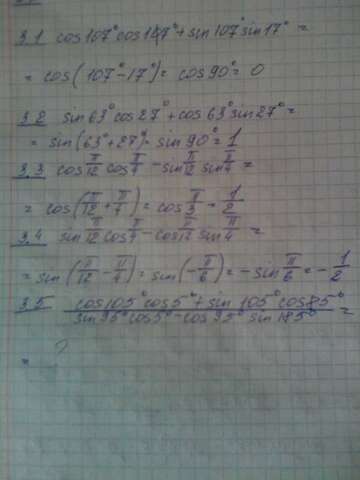 3.1 cos107°cos17°+sin107°sin17°=
= cos(107°-17°)= cos90°= 0
3.2 sin63°cos27°+cos63°sin27°=
= sin(63°+27°)= sin90°= 1
3.3 cos π/12 cos π/4 - sin π/12 sin π/4 =
= cos(π/12 + π/4)= cos π/3 = 1/2
3.4 sin π/12 cos π/4 - cos π/12 sin π/4 =
= sin(π/12 - π/4)= sin(-π/6)= -sin π/6 = -1/2
3.5 cos105°cos5°+sin105°cos85° / sin95°cos5°-cos95°sin185° =
= ?